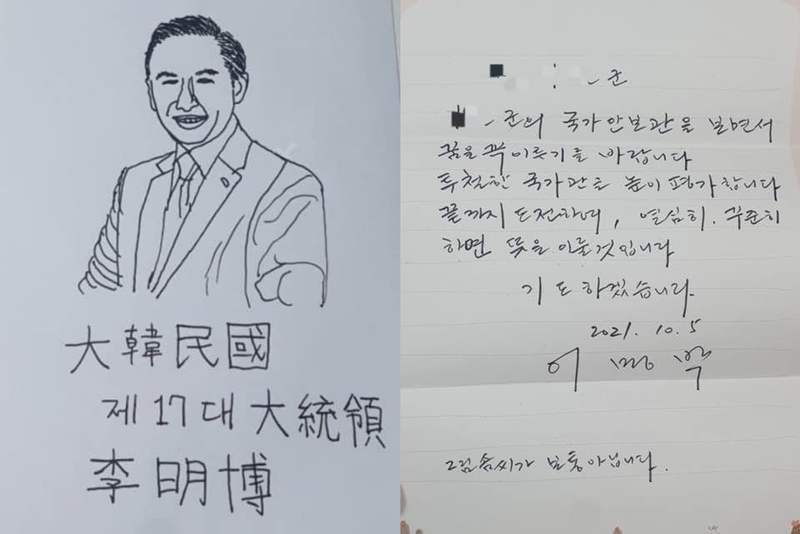 大韓民國
제17대 大統領
李明博
군
군의 국가안보관을 보면서
꿈을 꼭 이룻기를 바랍니다
투철한 국가관도 높이 평가합니다
끝까지 도전하며, 열심히. 꾸준히
하면 뜻을 이룰것입니다
기도하겠습니다.
2021. 10. 5
이명박
그림솜씨가 보통아닙니다.